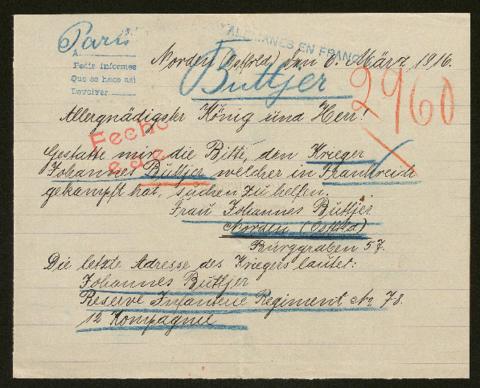 Paris
A
Pedir informes
Que se hace así
Devolver
ALEMANES EN FRANCIA
Norden (Ostfrld) den 6. März 1916.
Buttjer
2960
Allergnädigster König und Herr!
Fecho
Gestatte mir die Bitte, den Krieger
Johannes Buttjer welcher in Frankreich
gekämpft hat, suchen zu helfen.
Frau Johannes Buttjer
Norden (Ostfrld)
Burggraben 57.
Die letzte Adresse des Kriegers lautet:
Johannes Buttjer
Reserve Infanterie Regiment No 78.
12 Kompagnie